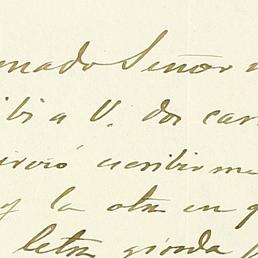 mado Señor
ibi a V. dos car
irvió escribirme
y la otra en q
letra gorda